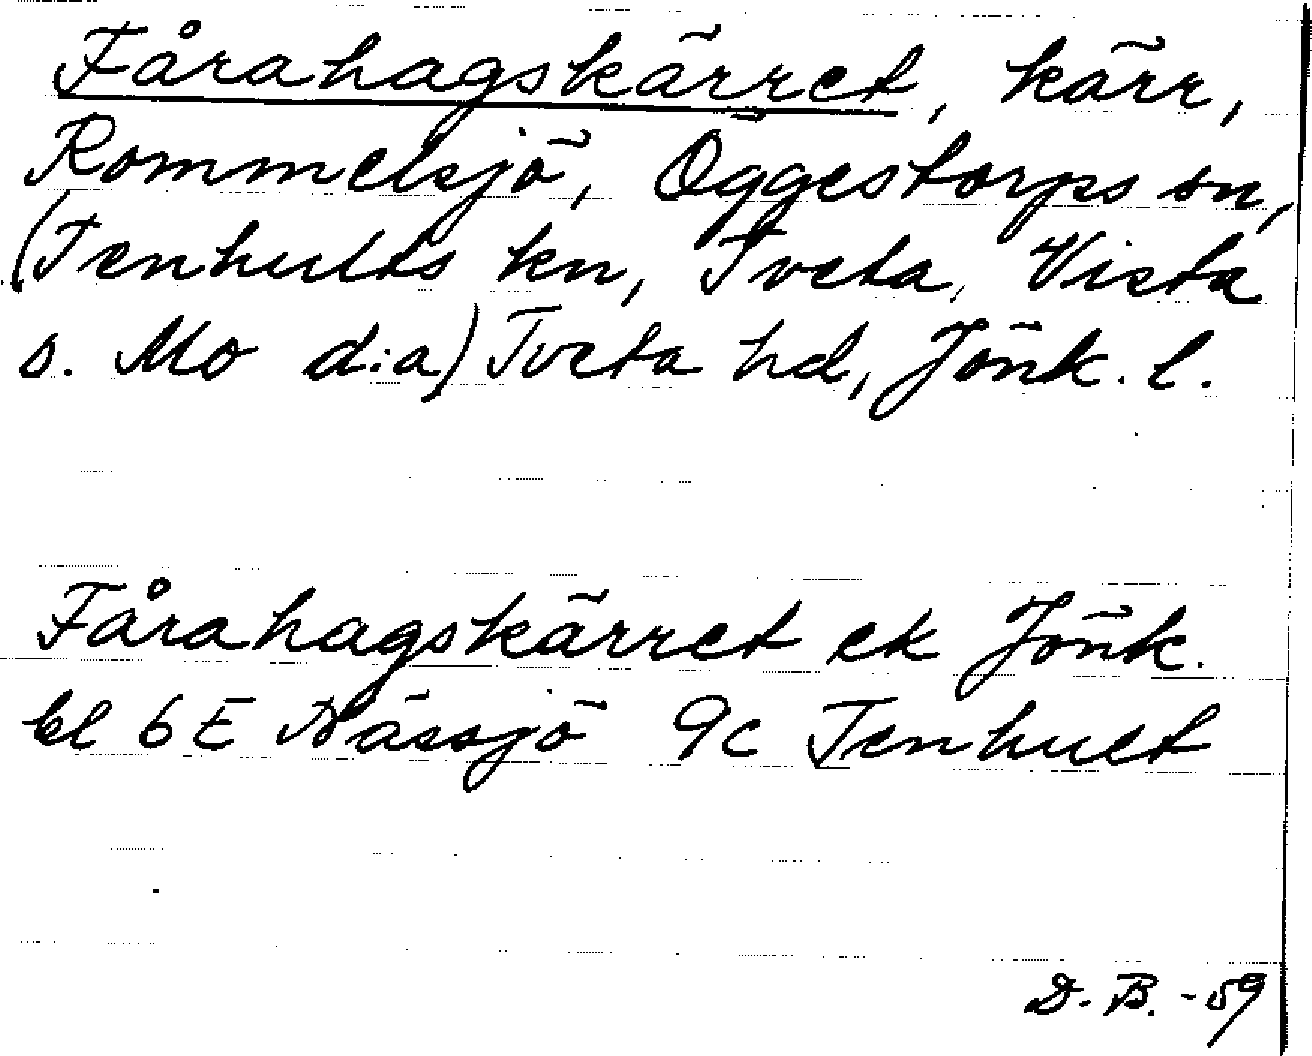 Fårahagskärret, kärr,
Rommelsjö, Öggestorps sn,
(Tenhults kn, Tveta, Vista
o. Mo d:a) Tveta hd, Jönk. l.
Fårahagskärret ek Jönk.
bl 6E Nässjö 9c Tenhult
D. B. -59